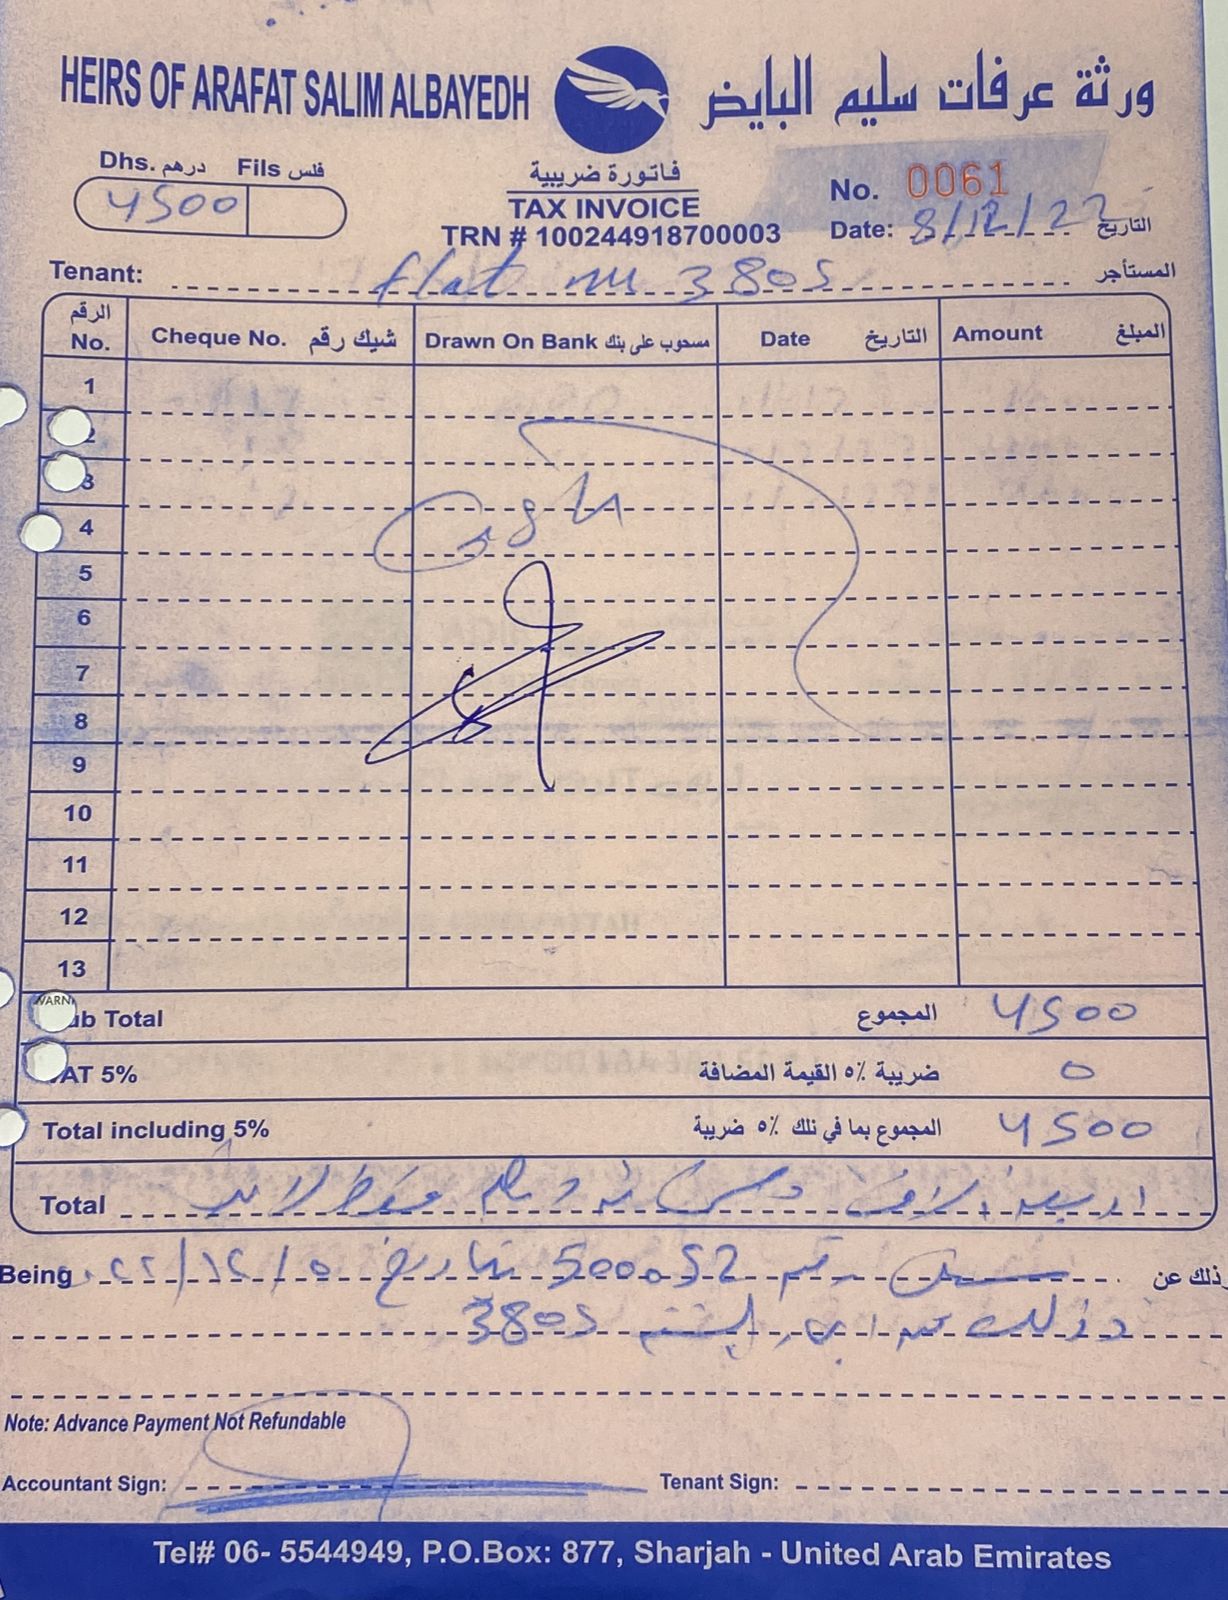 HEIRS OF ARAFAT SALIM ALBAYEDH ورثة عرفات سليم البايض
Dhs. درهم Fils فلس
4500
فاتورة ضريبية
TAX INVOICE
TRN # 100244918700003
No. 0061
Date: 8/12/22 التاريخ
Tenant: flat 3805 المستأجر
الرقم No. Cheque No. شيك رقم Drawn On Bank مسحوب على بنك Date التاريخ Amount المبلغ
1
2
3
Cash
4
5
6
7
8
9
10
11
12
13
ub Total المجموع 4500
WARN
AT 5% ضريبة ٥٪ القيمة المضافة 0
Total including 5% المجموع بما في ذلك ٥٪ ضريبة 4500
Total
Being رقم 500052 بتاريخ ٢٢/١٢/٥ وذلك عن
وذلك عن 3805
Note: Advance Payment Not Refundable
Accountant Sign: Tenant Sign:
Tel# 06- 5544949, P.O.Box: 877, Sharjah - United Arab Emirates